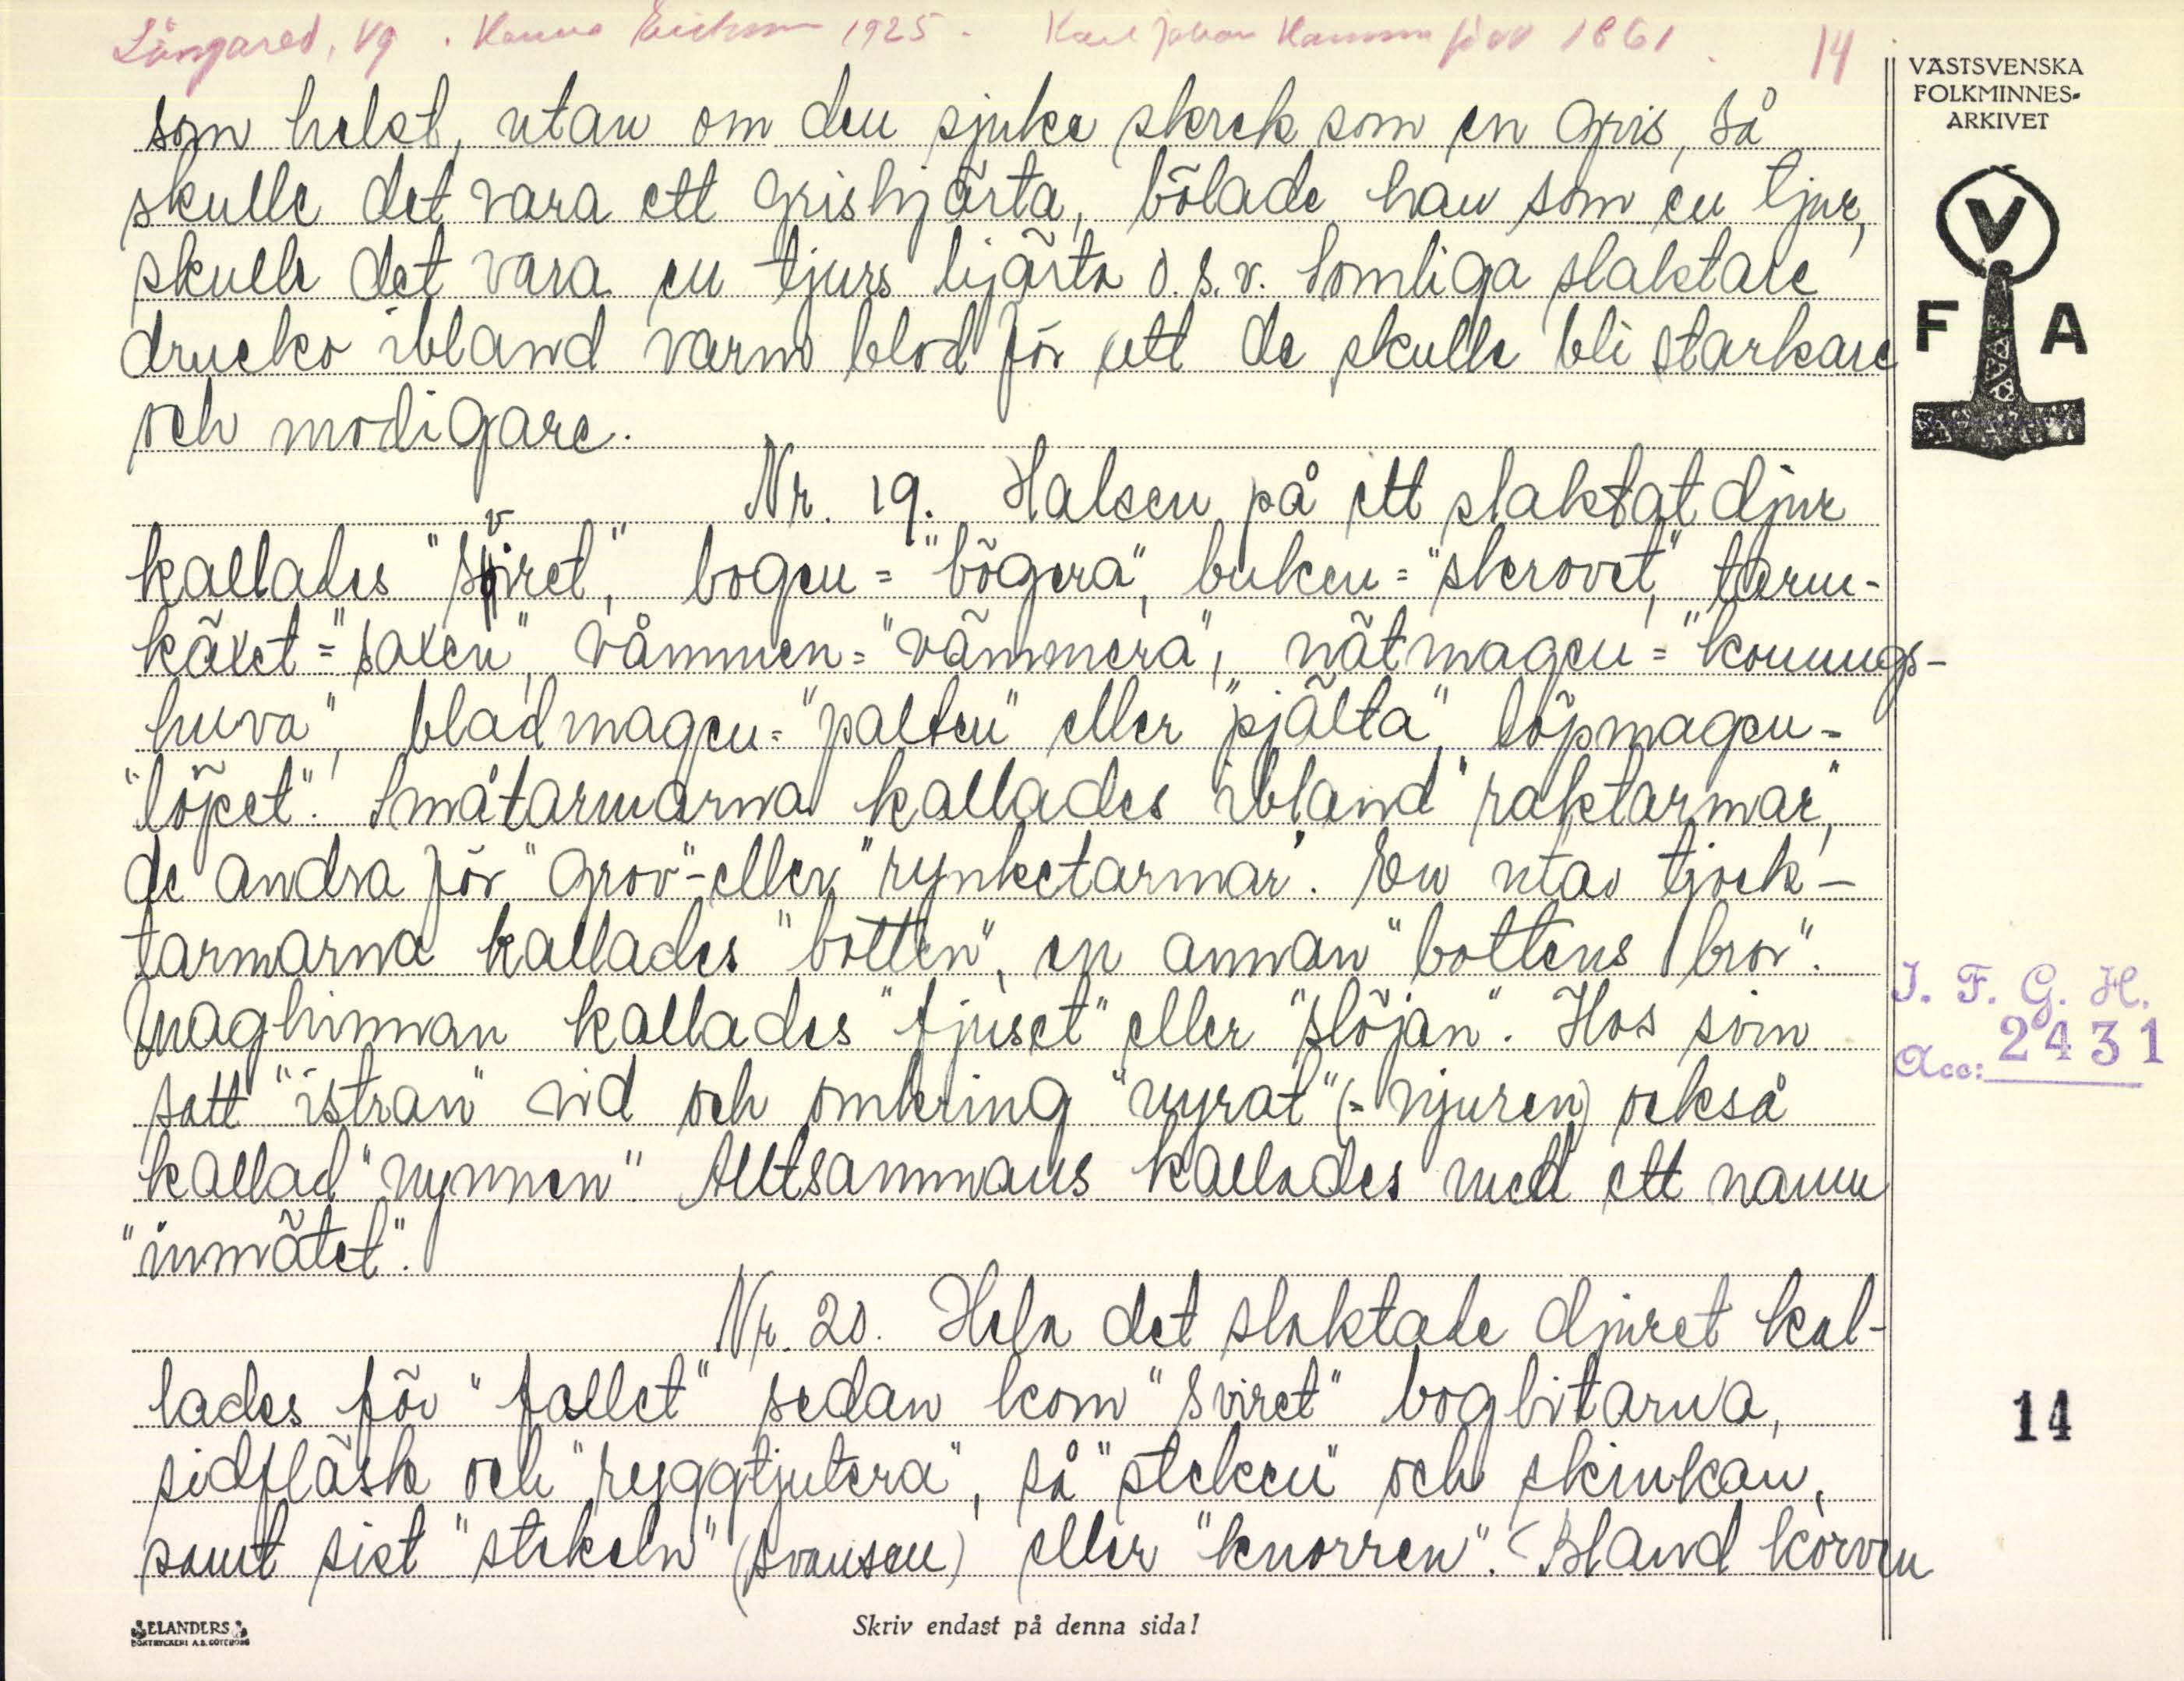 Långared, Vg. Hanna Erickson 1925. Karl Johan född 1861. 14
VÄSTSVENSKA
FOLKMINNES-
ARKIVET
V
F A
som helst, utan om den sjuke skrek som en gris, så
skulle det vara ett grishjärta, bölade han som en tjur,
skulle det vara en tjurs hjärta o.s.v. Somliga slaktare
drucko ibland varm blod för att de skulle bli starkare
och modigare.
Nr. 19. Halsen på ett slaktat djur
kallades "sviret," bogen = "bögera", buken = "skrovet," tarm-
käxet = "saxen", våmmen = "vämmera", nätmagen = "konungs-
huva", bladmagen = "palten" eller "pjälta", löpmagen -
"löpet". Småtarmarna kallades ibland "raktarmar,"
de andra för "grov"- eller "rynketarmar". En utav tjock-
tarmarna kallades "botten", en annan "bottens bror".
Maghinnan kallades "fjuset" eller "slöjan". Hos svin
satt "istran" vid och omkring "nyrat" (= njuren) också
kallad "nynnen". Alltsammans kallades med ett namn
"inmätet".
Nr. 20. Hela det slaktade djuret kal-
lades för "fallet" sedan kom "sviret" bogbitarna,
sidfläsk och "ryggtjutera", så "steken" och skinkan,
samt sist "stekeln" (svansen) eller "knorren". Bland korven
I. F. G. H.
Acc: 2431
14
ELANDERS
BOKTRYCKERI A.B. GÖTEBORG
Skriv endast på denna sida!